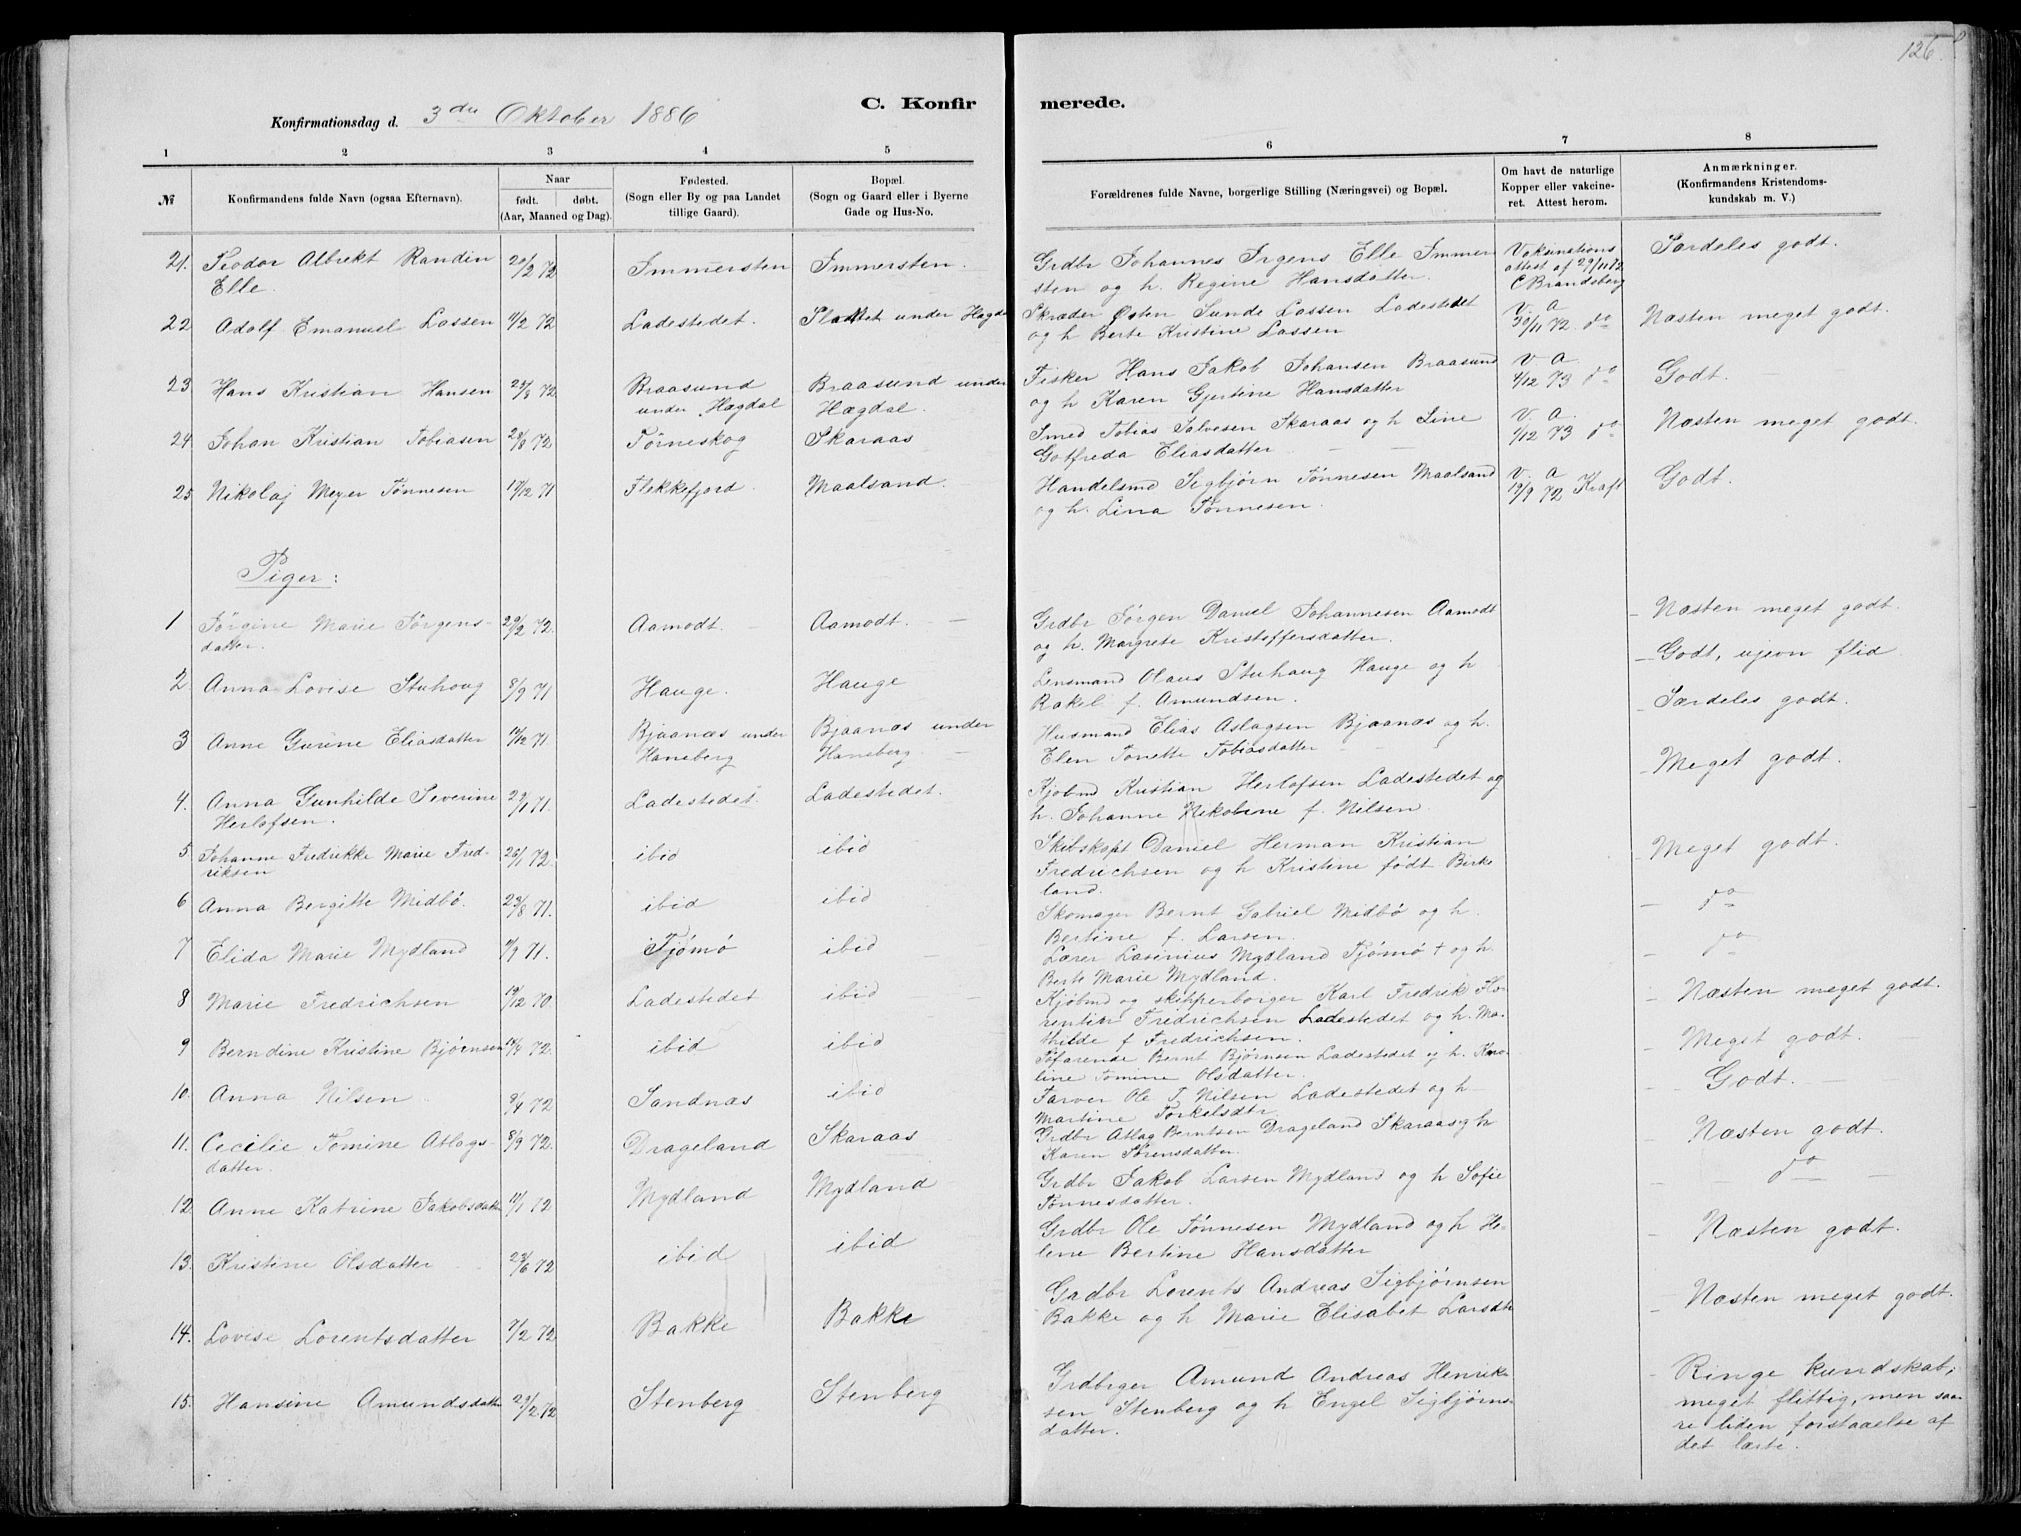 126
C. Konfirmerede.
Konfirmationsdag d. 3die Oktober 1886
1 2 3 4 5 6 7 8
№
Konfirmandens fulde Navn (ogsaa Efternavn).
Naar
født. døbt.
(Aar, Maaned og Dag).
Fødested.
(Sogn eller By og paa Landet
tillige Gaard).
Bopæl.
(Sogn og Gaard eller i Byerne
Gade og Hus-No.
Forældrenes fulde Navne, borgerlige Stilling (Næringsvei) og Bopæl.
Om havt de naturlige
Kopper eller vakcine-
ret. Attest herom.
Anmærkninger.
(Konfirmandens Kristendoms-
kundskab m. V.)
21. Teodor Albrekt Randin 20/2 72 Immersten Immersten. Grdbr Johannes Irgens Elle Immer Vaksinations Særdeles godt.
Elle. sten og h. Regine Hansdatter. attest af 29/11 72
C Brandsberg
22 Adolf Emanuel Lassen 11/2 72 Ladestedet. Slottet under Hægda Skræder Østen Sunde Lassen Ladestedet V. A. Næsten meget godt.
og h Berte Kristine Lassen 30/11 72. do
23 Hans Kristian Hansen 23/8 72 Braasund Braasund under Fisker Hans Jakob Johansen Braasund V A. Godt.
under Hægdal Hægdal. og h Karen Gjertine Hansdatter 4/12 73 do
24 Johan Kristian Tobiasen 28/8 72 Törneskog Skaraas Smed Tobias Salvesen Skaraas og h Sine V. A. Næsten meget godt.
Gotfreda Eliasdatter 1/12 73 do
25 Nikolaj Meyer Tönnesen 17/12 71 Flekkefjord. Maalsand. Handelsmd Sigbjörn Tönnesen Maalsand V. A Godt.
og h. Lina Tönnesen. 19/9 72 Kraft
Piger:
1 Jörgine Marie Jörgens- 29/2 72. Aamodt. Aamodt. Grdbr Jörgen Daniel Johannesen Aamodt Næsten meget godt.
datter. og h. Margrete Kristoffersdatter.
2 Anna Lovise Stuhoug 8/9 71 Hauge. Hauge Lensmand Olaus Stuhaug Hauge og h Godt, ujevn flid
Rakel f. Amundsen.
3 Anne Gurine Eliasdatter 12/12 71. Bjaanæs under Bjaanæs under Husmand Elias Aslagsen Bjaanæs og h. Særdeles godt.
Haneberg Haneberg Elen Tonette Tobiasdatter
4. Anna Gunhilde Severine 29/1 71. Ladestedet. Ladestedet. Kjöbmd Kristian Herlofsen Ladestedet og Meget godt.
Herlofsen. h. Johanne Nikoline f. Nilsen.
5 Johanne Fredrikke Marie Fred- 26/1 72. ibid ibid Skibskapt Daniel Herman Kristian Meget godt.
riksen Fredrichsen og h Kristine født Birke
land.
6 Anna Bergitte Midbö. 23/8 71. ibid ibid Skomager Bernt Gabriel Midbö og h. do
Bertine f. Larsen.
7 Elida Marie Mydland 11/9 71. Tjömö ibid Lærer Lasinius Mydland Tjömö † og h. do
Berte Marie Mydland.
8 Marie Fredrichsen 19/12 70. Ladestedet ibid Kjöbmd og skipperborger Karl Fredrik Flo- Næsten meget godt.
rentin Fredrichsen Ladestedet og h. Ma-
thilde f Fredrichsen.
9 Berndine Kristine Bjørnsen 14/4 72. ibid ibid Söfarende Bernt Bjørnsen Ladestedet og h. Karo- Meget godt.
line Tomine Olsdatter.
10. Anna Nilsen 8/4 72 Sandnæs ibid Farver Ole T. Nilsen Ladestedet og h Godt.
Martine Torkelsdtr
11. Cecilie Tomine Atlags- 8/9 72. Drageland Skaraas Grdbr Atlag Berntsen Drageland Skaraas og h Næsten godt.
datter. Karen Sörensdatter.
12. Anne Katrine Jakobsdatter 11/1 72 Mydland Mydland Grdbr Jakob Larsen Mydland og h Sofie do
Tönnesdatter.
13. Kristine Olsdatter 23/6 72 ibid ibid Grdbr Ole Tönnesen Mydland og h He- Næsten godt.
lene Bertine Hansdatter
14. Lovise Lorentsdatter 7/2 72 Bakke Bakke Grdbr Lorents Andreas Sigbjørnsen Næsten meget godt.
Bakke og h Marie Elisabet Larsdtr
15. Hansine Amundsdatter 29/2 72 Stenberg Stenberg Grdbrger Amund Andreas Henrik- Ringe kundskab;
sen Stenberg og h Engel Sigbjørns- meget flittig, men saa-
datter. re liden forstaaelse af
det lærte.